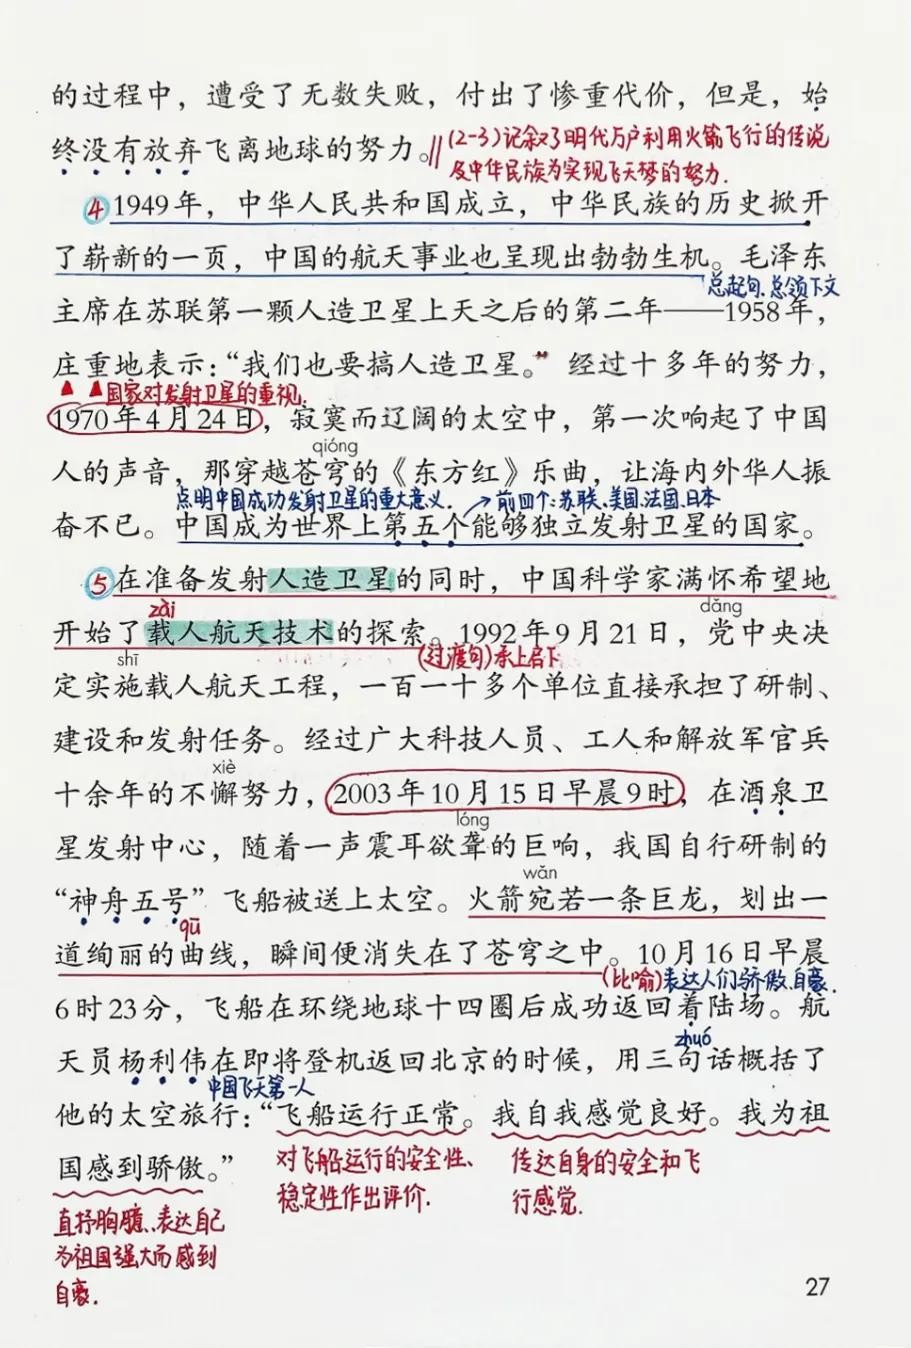 的过程中，遭受了无数失败，付出了惨重代价，但是，始
终没有放弃飞离地球的努力。∥(2-3)记叙了明代万户利用火箭飞行的传说
及中华民族为实现飞天梦的努力.
④1949年，中华人民共和国成立，中华民族的历史掀开
了崭新的一页，中国的航天事业也呈现出勃勃生机。毛泽东
总起句.总领下文
主席在苏联第一颗人造卫星上天之后的第二年——1958年，
庄重地表示：“我们也要搞人造卫星。”经过十多年的努力，
国家对发射卫星的重视.
1970年4月24日，寂寞而辽阔的太空中，第一次响起了中国
qióng
人的声音，那穿越苍穹的《东方红》乐曲，让海内外华人振
点明中国成功发射卫星的重大意义. →前四个:苏联、美国、法国、日本
奋不已。中国成为世界上第五个能够独立发射卫星的国家。
⑤在准备发射人造卫星的同时，中国科学家满怀希望地
zài dǎng
开始了载人航天技术的探索。1992年9月21日，党中央决
shī (过渡句)承上启下
定实施载人航天工程，一百一十多个单位直接承担了研制、
建设和发射任务。经过广大科技人员、工人和解放军官兵
xiè
十余年的不懈努力，2003年10月15日早晨9时，在酒泉卫
lóng
星发射中心，随着一声震耳欲聋的巨响，我国自行研制的
wǎn
“神舟五号”飞船被送上太空。火箭宛若一条巨龙，划出一
qū
道绚丽的曲线，瞬间便消失在了苍穹之中。10月16日早晨
(比喻)表达人们骄傲、自豪.
6时23分，飞船在环绕地球十四圈后成功返回着陆场。航
zhuó
天员杨利伟在即将登机返回北京的时候，用三句话概括了
中国飞天第一人
他的太空旅行：“飞船运行正常。我自我感觉良好。我为祖
国感到骄傲。”
对飞船运行的安全性、
稳定性作出评价.
传达自身的安全和飞
行感觉.
直抒胸臆、表达自己
为祖国强大而感到
自豪.
27